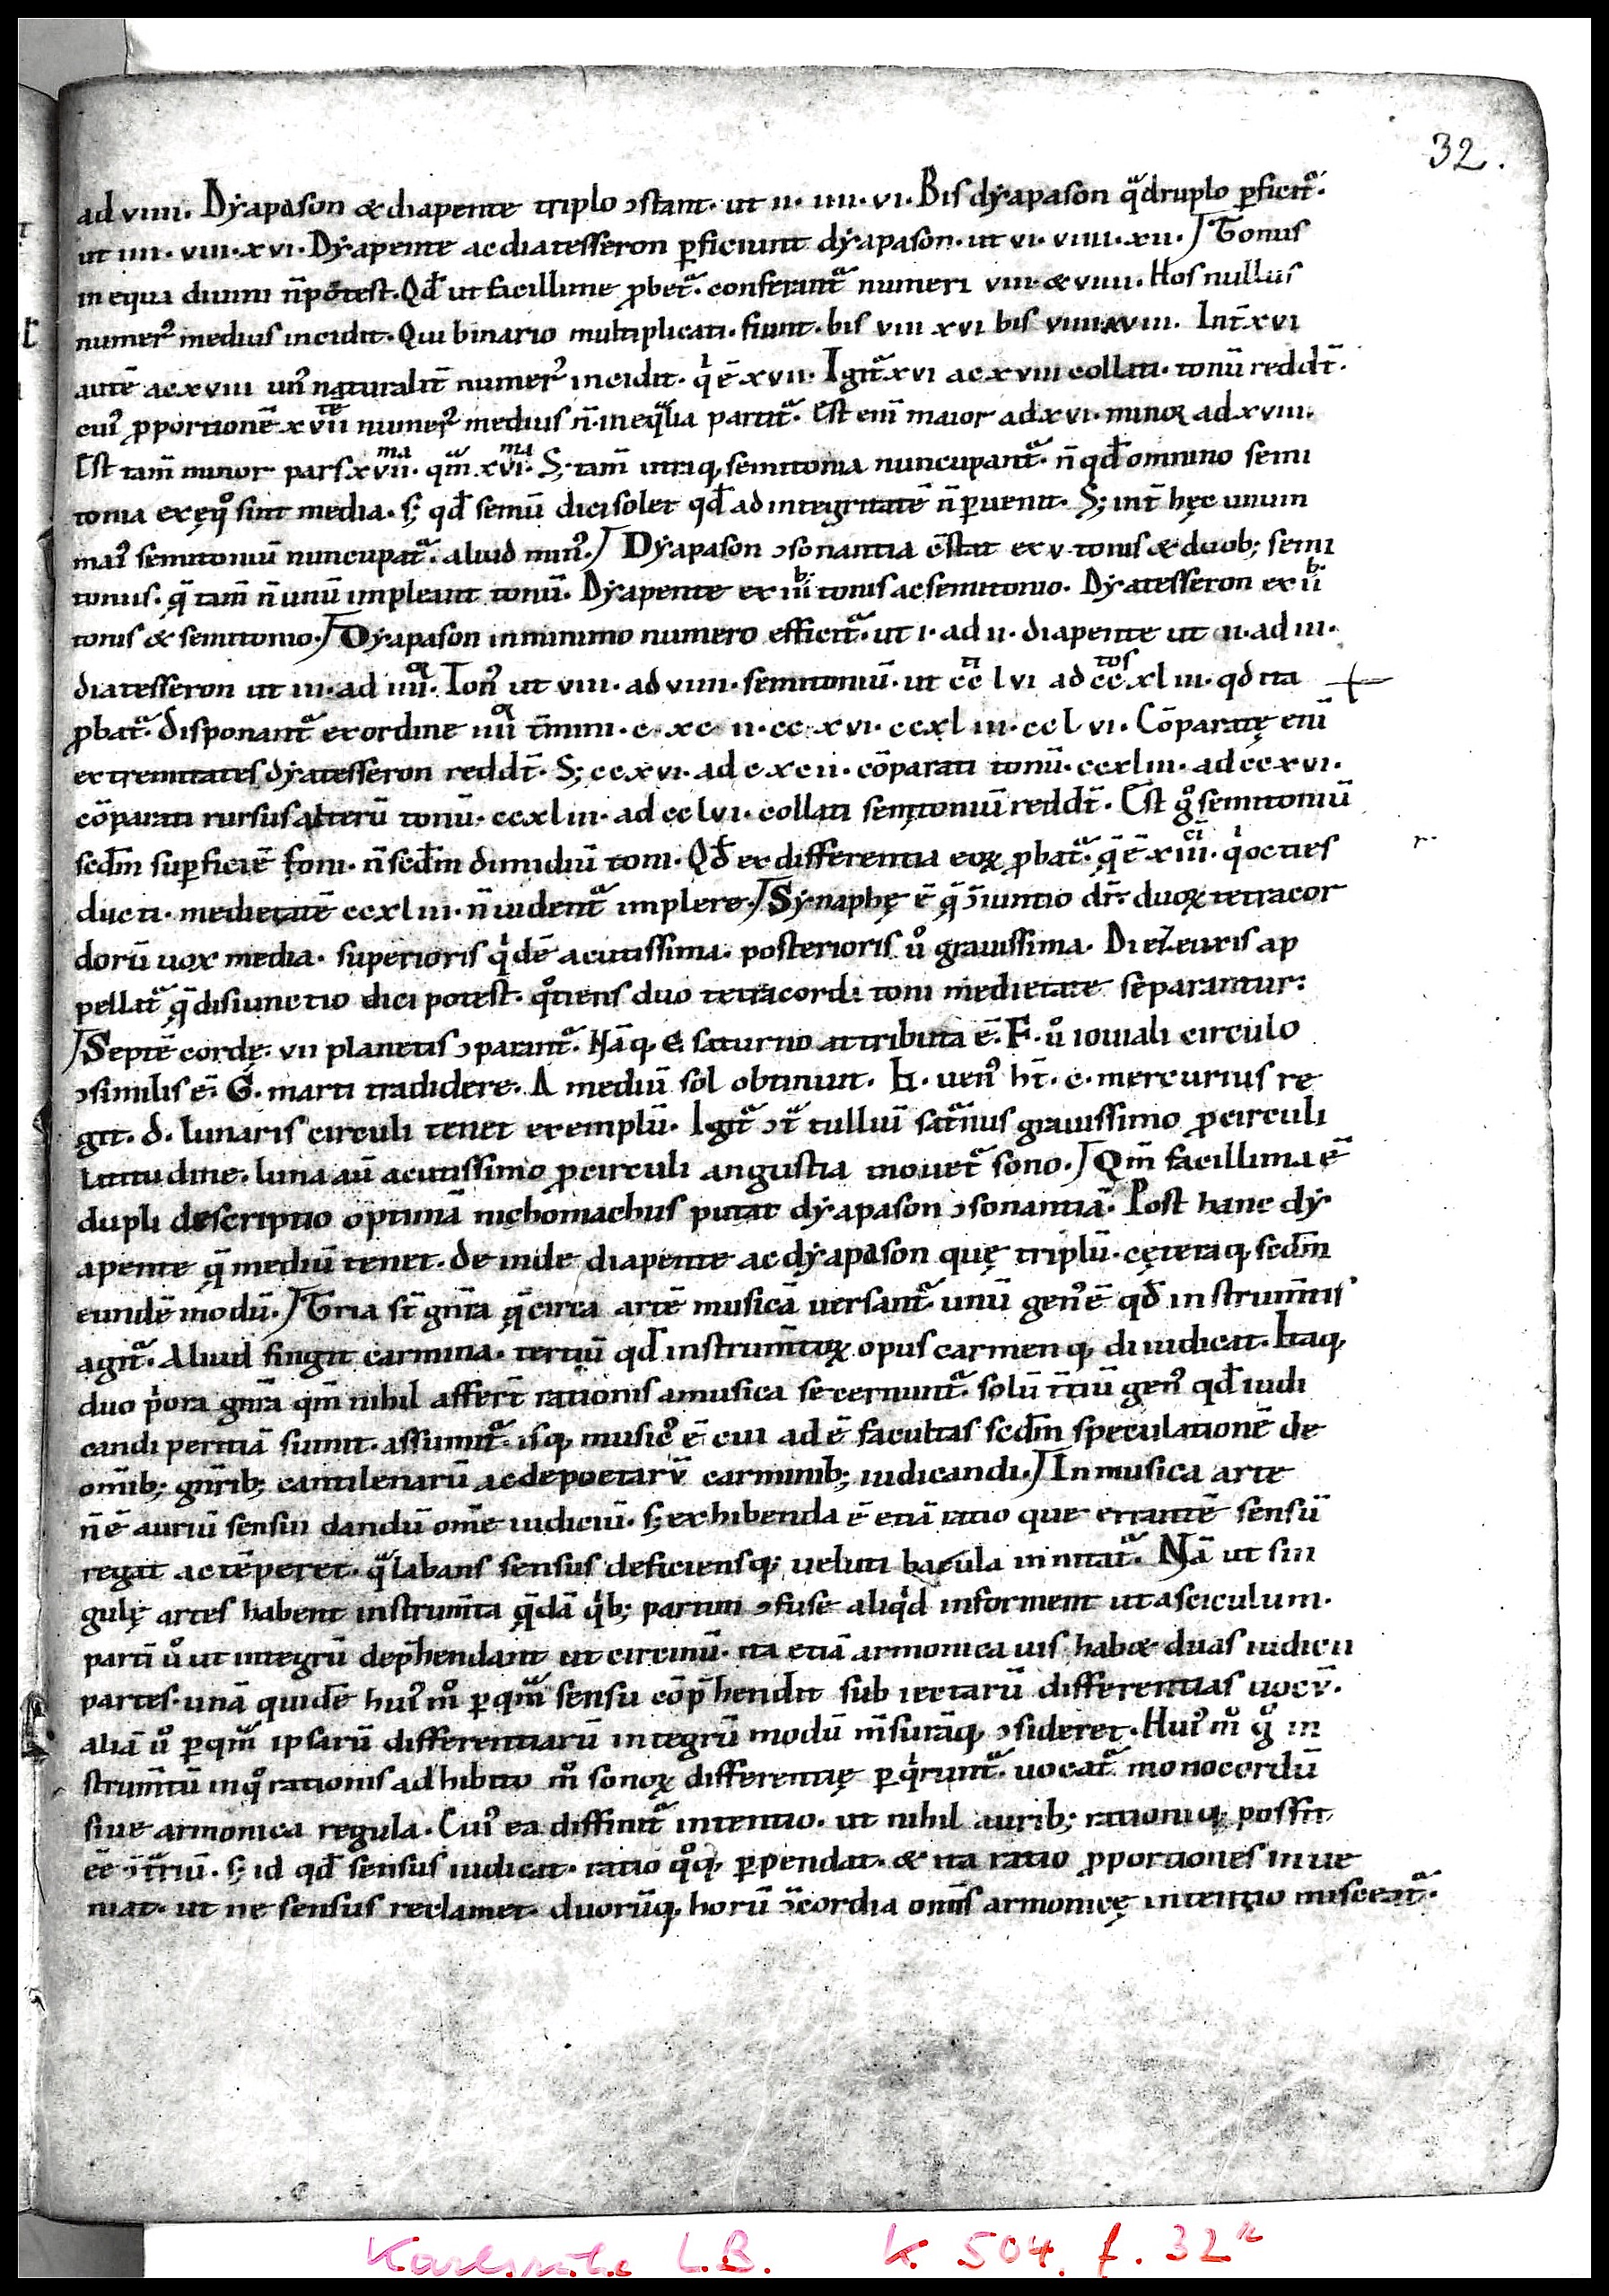 32.
ad viiii. Dẏapason & diapente triplo ↄstant. ut ii. iiii. vi. Bis dẏapason qͣdruplo p̲ficit᷑.
ut iiii. viii. xvi. Dẏapente ac diatesseron p̲ficiunt dẏapason. ut vi. viiii. xii. Tonus
in equa diuini n̄ potest. Qđ ut facillime ꝓbet᷑. conferant᷑ numeri viii. & viiii. Hos nullus
numer᷒ medius incidit. Qui binario multiplicati. fiunt. bis viii xvi bis viiii xviii. Int̄ xvi
autē ac xviii un᷒ naturalit̄ numer᷒ incidit. qⁱ ē xvii. Igit᷑ xvi ac xviii collati. tonū reddt̄.
cui᷒ ꝓportionē xviiͭᵉ numer᷒ medius n̄ in eqͣlia partit᷑. Est eni̅ maior ad xvi. minor ad xviii.
Est tam̄ minor pars xviiᵐᵃ. qͣm̄ xviᵐᵃ. S; tam̄ utraq, semitonia nuncupant᷑. n̄ qđ omnino semi
tonia ex ęqͦ sint media. s; qđ semū dici solet qđ ad integritatē n̄ p̲uenit. S; int̄ hęc unum
mai᷒ semitoniū nuncupat᷑. aliud min᷒. Dẏapason ↄsonantia c̄stat ex v. tonis & duob; semi
toniis. q̄ tam̄ n̄ unū impleant tonū. Dẏapente ex iiiᵇ⁾ tonis ac semitonio. Dẏatesseron ex iiᵇ⁾
tonis & semitonio. Dẏapason in minimo numero efficit᷑. ut i. ad ii. diapente ut ii. ad iii.
diatesseron ut iii. ad iiiiᵒʳ. Ton᷒ ut viii. ad viiii. semitoniū. ut cc̄ᵗⁱ lvi ad cc̄ᵗᵒˢ xliii. qd ita
ꝓbat᷑. Disponant᷑ ex ordine iiiiᵒʳ t̄mini. c. xc ii. cc. xvi. ccxl iii. ccl vi. Cōparatę eni̅
extremitates dẏatesseron reddt̄. S; ccxvi. ad cxcii. cōparati tonū. ccxliii. ad ccxvi.
cōparati rursus alterū tonū. ccxliii. ad cclvi. collati semitoniū reddt̄. Est gͦ semitoniū
scd̄m sup̲ficiē toni. n̄ scd̄m dimidiū toni. Qđ ex differentia eoꝝ ꝓbat᷑. q̄ ē xiiiᶜⁱ. qⁱ octies
ducti. medietatē ccxliii. n̄ uident᷑ implere. Sẏnaphę ē q̄ ↄ̄iunctio dr̄. duoꝝ tetracor
dorū uox media. superioris qⁱdē acutissima. posterioris uͦ grauissima. Diezeuxis ap
pellat᷑ q̄ disiunctio dici potest. qͦtiens duo tetracordi toni medietate separantur:
Septē cordę. vii planetis ↄparant᷑. Nāq, E. saturno attributa ē. F. uͦ iouiali circulo
ↄsimilis ē. G. marti tradidere. A mediū sol obtinuit. H. uen᷒ ht̄. c. mercurius re
git. d. lunaris circuli tenet exemplū. Igit᷑ ↄt᷑ tulliū sat᷑nus grauissimo ꝓ circuli
latitudine. luna aū acutissimo ꝓ circuli angustia mouet᷑ sono. Qm̄ facillima ē
dupli descriptio optimā nichomachus putat dẏapason ↄsonantiā. Post hanc dẏ
apente q̄ mediū tenet. de inde diapente ac dẏapason quę triplū. cęteraq, scd̄m
eundē modū. Tria st̄ gn̄ra q̄ circa artē musicā uersant᷑. unū gen᷒ ē qđ instrum̄tis
agit᷑. Aliud fingit carmina. tertiū qđ instrum̄toꝝ opus carmenq, di iudicat. Itaq,
duo pⁱora gn̄ra qm̄ nihil affert̄ rationis a musica secernunt᷑. solū t̄ciū gen᷒ qđ iudi
candi peritiā sumit. assumit᷑. isq, music᷒ ē cui ad ē facultas scd̄m speculationē de
om̄ib; gn̄rib; cantilenarū ac de poetarū carminib; iudicandi. In musica arte
n̄ ē auriū sensui dandū om̄e iudiciū. s; exhibenda ē etiā ratio que errantē sensū
regat ac tēperet. qͣ labans sensus deficiensq; ueluti bacula innitat᷑. Nā ut sin
gulę artes habent instrum̄ta q̄dā qⁱb; partim ↄfuse aliqⁱd informent ut asciculum.
parti̅ uͦ ut integrū dep̄hendant ut circinū. ita etiā armonica uis hab& duas iudicii
partes. unā quidē hui᷒ mͦ p̲ qͣm̄ sensu cōp̄hendit sub iectarū differentias uocū.
aliā uͦ p̲ qͣm̄ ipsarū differentiarū integrū modū m̄surāq, ↄsideret. Hui᷒ mͦ gͦ in
strum̄tū in qͦ rationis adhibito mͦ sonoꝝ differentię p̲qⁱrunt᷑. uocat᷑ monocordū
siue armonica regula. Cui᷒ ea diffinit᷑ intentio. ut nihil aurib; rationiq, possit
eē ↄt᷑riū. s; id qđ sensus iudicat. ratio qͦq, p̲pendat. & ita ratio ꝓportiones inue
niat. ut ne sensus reclamet. duorūq, horū ↄ̄cordia om̄is armonicę intentio misceat᷑.
Karlsruhe L.B. K 504. f. 32ʳ